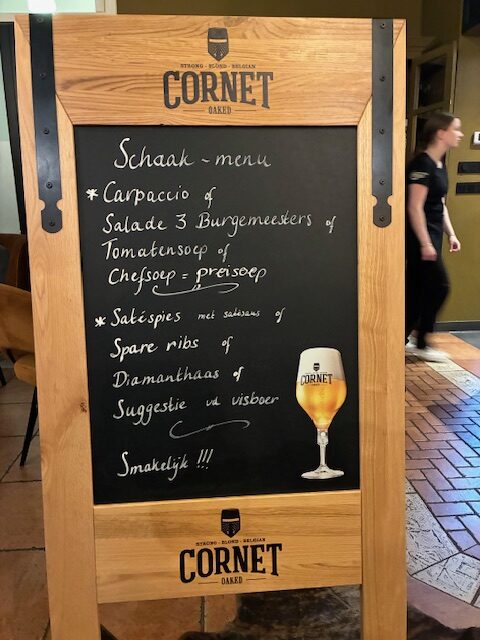 STRONG - BLOND - BELGIAN
CORNET
OAKED
Schaak - menu
* Carpaccio of
Salade 3 Burgemeesters of
Tomatensoep of
Chefsoep = preisoep
* Satéspies met satésaus of
Spare ribs of
Diamanthaas of
Suggestie vd visboer
Smakelijk !!!
CORNET
STRONG - BLOND - BELGIAN
CORNET
OAKED